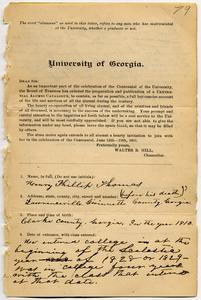 79
The word "alumnus" as used in this letter, refers to any man who has matriculated
at the University, whether a graduate or not.
University of Georgia.
DEAR SIR:
As an important part of the celebration of the Centennial of the University, the
Board of Trustees has ordered the preparation and publication of a CENTENNIAL
ALUMNI CATALOGUE, to contain, as far as possible, a full but concise account
of the life and services of all the alumni during the century.
The hearty co-operation of all living alumni, and of the relatives and friends
of all deceased, is necessary to the success of the undertaking. Your prompt and
careful attention to the inquiries
University, and will be most cordially appreciated. If you are not able to give the
information under any head, please leave the space blank, so that it may be filled
by others.
The alma mater again extends to all alumni a hearty invitation to join with
her in the celebration of the Centennial, June
Fraternally yours,
WALTER B. HILL,
Chancellor.
1. Name, in full. (Do not use initials)
Henry Phillip Thomas
2. Address, state, county, city, street and number (before his death)
Lawrenceville Gwinnett County Georgia
3. Place and time of birth:
Clarke County, Georgia, In the year 1810
4. Date of entrance, with class entered:
He entered college at the
beginning of the
year of 1828 or 1829
was in college four years
with the class that entered
at that date.